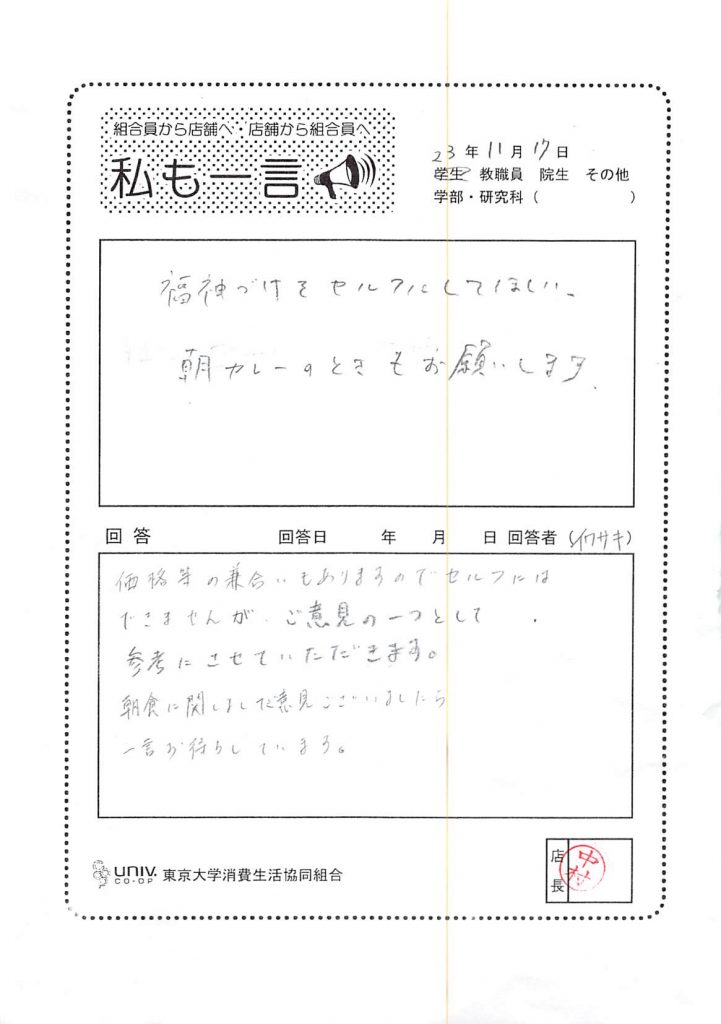 組合員から店舗へ・店舗から組合員へ
私も一言
23年11月17日
学生 教職員 院生 その他
学部・研究科（ ）
福神づけをセルフにしてほしい。
朝カレーのときもお願いします。
回答 回答日 年 月 日 回答者（イワサキ）
価格等の兼合いもありますのでセルフには
できませんが、ご意見の一つとして
参考にさせていただきます。
朝食に関しましてご意見ございましたら
一言お待ちしています。
UNIV. CO-OP 東京大学消費生活協同組合
店長 中村